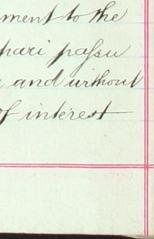 ment to the
pari passu
and without
of interest